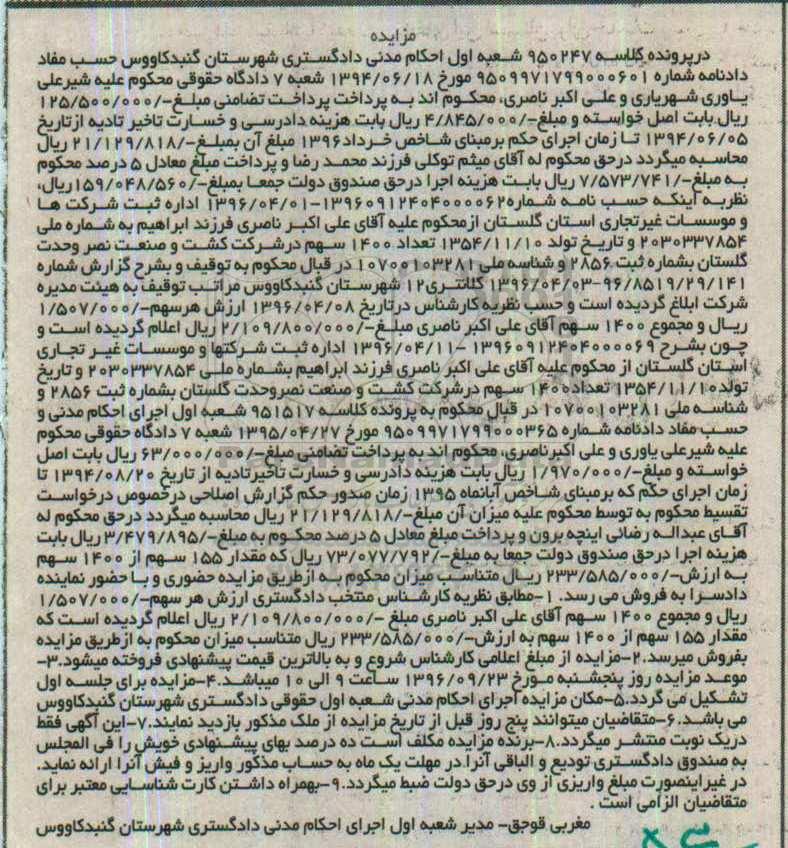 مزایده
درپرونده کلاسه ۹۵۰۲۴۷ شعبه اول احکام مدنی دادگستری شهرستان گنبدکاووس حسب مفاد
دادنامه شماره ۹۵۰۹۹۷۱۷۹۹۰۰۰۶۰۱ مورخ ۱۳۹۴/۰۶/۱۸ شعبه ۷ دادگاه حقوقی محکوم علیه شیرعلی
یاوری شهریاری و علی اکبر ناصری، محکوم اند به پرداخت پرداخت تضامنی مبلغ-/۱۲۵/۵۰۰/۰۰۰
ریال.بابت اصل خواسته و مبلغ-/۴/۸۴۵/۰۰۰ ریال بابت هزینه دادرسی و خسارت تاخیر تادیه ازتاریخ
۱۳۹۴/۰۶/۰۵ تا زمان اجرای حکم برمبنای شاخص خرداد۱۳۹۶ مبلغ آن بمبلغ-/۲۱/۱۲۹/۸۱۸ ریال
محاسبه میگردد درحق محکوم له آقای میثم توکلی فرزند محمد رضا و پرداخت مبلغ معادل ۵ درصد محکوم
به مبلغ-/۷/۵۷۳/۷۴۱ ریال بابت هزینه اجرا درحق صندوق دولت جمعا بمبلغ-/۱۵۹/۰۴۸/۵۶۰ریال،
نظربه اینکه حسب نامه شماره۱۳۹۶۰۹۱۲۴۰۴۰۰۰۰۶۲-۱۳۹۶/۰۴/۰۱ اداره ثبت شرکت ها
و موسسات غیرتجاری استان گلستان ازمحکوم علیه آقای علی اکبر ناصری فرزند ابراهیم به شماره ملی
۲۰۳۰۳۳۷۸۵۴ و تاریخ تولد ۱۳۵۴/۱۱/۱۰ تعداد ۱۴۰۰ سهم درشرکت کشت و صنعت نصر وحدت
گلستان بشماره ثبت ۲۸۵۶ و شناسه ملی ۱۰۷۰۰۱۰۳۲۸۱ در قبال محکوم به توقیف و بشرح گزارش شماره
۹۶/۸۵۱۹/۲۹/۱۴۱-۱۳۹۶/۰۴/۰۳ کلانتری۱۲ شهرستان گنبدکاووس مراتب توقیف به هیئت مدیره
شرکت ابلاغ گردیده است و حسب نظریه کارشناس درتاریخ ۱۳۹۶/۰۴/۰۸ ارزش هرسهم-/۱/۵۰۷/۰۰۰
ریال و مجموع ۱۴۰۰ سهم آقای علی اکبر ناصری مبلغ-/۲/۱۰۹/۸۰۰/۰۰۰ ریال اعلام گردیده است و
چون بشرح ۱۳۹۶۰۹۱۲۴۰۴۰۰۰۰۶۹ -۱۳۹۶/۰۴/۱۱ اداره ثبت شرکتها و موسسات غیر تجاری
استان گلستان از محکوم علیه آقای علی اکبر ناصری فرزند ابراهیم بشماره ملی ۲۰۳۰۳۳۷۸۵۴ و تاریخ
تولد۱۳۵۴/۱۱/۱۰ تعداد۱۴۰۰ سهم درشرکت کشت و صنعت نصروحدت گلستان بشماره ثبت ۲۸۵۶ و
شناسه ملی ۱۰۷۰۰۱۰۳۲۸۱ در قبال محکوم به پرونده کلاسه ۹۵۱۵۱۷ شعبه اول اجرای احکام مدنی و
حسب مفاد دادنامه شماره ۹۵۰۹۹۷۱۷۹۹۰۰۰۳۶۵ مورخ ۱۳۹۵/۰۴/۲۷ شعبه ۷ دادگاه حقوقی محکوم
علیه شیرعلی یاوری و علی اکبرناصری، محکوم اند به پرداخت تضامنی مبلغ-/۶۳/۰۰۰/۰۰۰ ریال بابت اصل
خواسته و مبلغ-/۱/۹۷۰/۰۰۰ ریال بابت هزینه دادرسی و خسارت تاخیرتادیه از تاریخ ۱۳۹۴/۰۸/۲۰ تا
زمان اجرای حکم که برمبنای شاخص آبانماه ۱۳۹۵ زمان صدور حکم گزارش اصلاحی درخصوص درخواست
تقسیط محکوم به توسط محکوم علیه میزان آن مبلغ-/۲۱/۱۲۹/۸۱۸ ریال محاسبه میگردد درحق محکوم له
آقای عبداله رضائی اینچه برون و پرداخت مبلغ معادل ۵ درصد محکوم به مبلغ-/۳/۴۷۹/۸۹۵ ریال بابت
هزینه اجرا درحق صندوق دولت جمعا به مبلغ-/۷۳/۰۷۷/۷۹۲ ریال که مقدار ۱۵۵ سهم از ۱۴۰۰ سهم
به ارزش-/۲۳۳/۵۸۵/۰۰۰ ریال متناسب میزان محکوم به ازطریق مزایده حضوری و با حضور نماینده
دادسرا به فروش می رسد. ۱-مطابق نظریه کارشناس منتخب دادگستری ارزش هر سهم-/۱/۵۰۷/۰۰۰
ریال و مجموع ۱۴۰۰ سهم آقای علی اکبر ناصری مبلغ -/۲/۱۰۹/۸۰۰/۰۰۰ ریال اعلام گردیده است که
مقدار ۱۵۵ سهم از ۱۴۰۰ سهم به ارزش-/۲۳۳/۵۸۵/۰۰۰ ریال متناسب میزان محکوم به ازطریق مزایده
بفروش میرسد.۲-مزایده از مبلغ اعلامی کارشناس شروع و به بالاترین قیمت پیشنهادی فروخته میشود.۳-
موعد مزایده روز پنجشنبه مورخ ۱۳۹۶/۰۹/۲۳ ساعت ۹ الی ۱۰ میباشد.۴-مزایده برای جلسه اول
تشکیل می گردد.۵-مکان مزایده اجرای احکام مدنی شعبه اول حقوقی دادگستری شهرستان گنبدکاووس
می باشد.۶-متقاضیان میتوانند پنج روز قبل از تاریخ مزایده از ملک مذکور بازدید نمایند.۷-این آگهی فقط
دریک نوبت منتشر میگردد.۸-برنده مزایده مکلف است ده درصد بهای پیشنهادی خویش را فی المجلس
به صندوق دادگستری تودیع و الباقی آنرا در مهلت یک ماه به حساب مذکور واریز و فیش آنرا ارائه نماید.
در غیراینصورت مبلغ واریزی از وی درحق دولت ضبط میگردد.۹-بهمراه داشتن کارت شناسایی معتبر برای
متقاضیان الزامی است .
مغربی قوجق- مدیر شعبه اول اجرای احکام مدنی دادگستری شهرستان گنبدکاووس